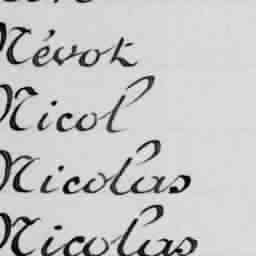 Névot
Nicol
Nicolas
Nicolas